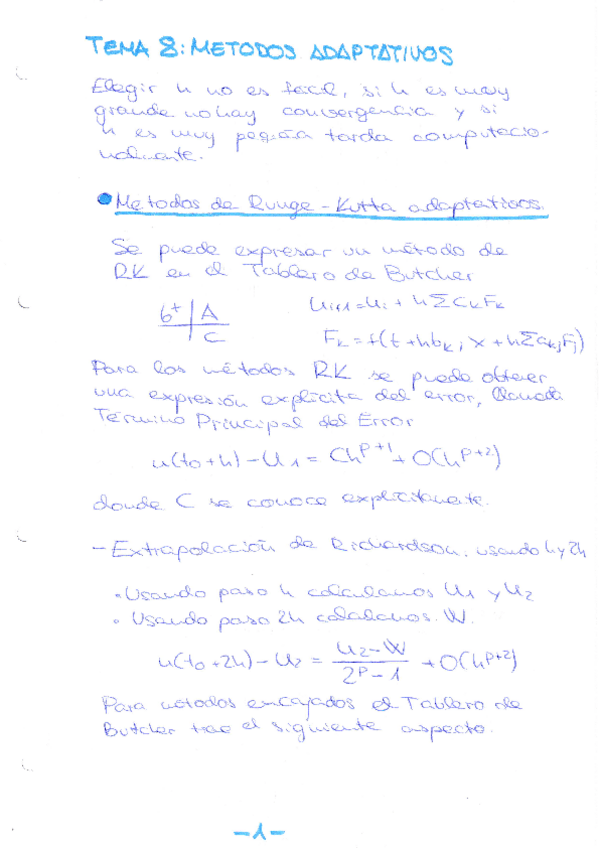 TEMA 8: METODOS ADAPTATIVOS
Elegir h no es fácil, si h es muy
grande no hay convergencia y si
h es muy pequeña tarda computacio-
nalmente.
Metodos de Runge-Kutta adaptativos.
Se puede expresar un método de
RK en el Tablero de Butcher
b^t | A
C
U_{i+1} = U_i + h Σ c_k F_k
F_k = f(t + h b_k, x + h Σ a_{kj} F_j)
Para los métodos RK se puede obtener
una expresión explícita del error, llamada
Término Principal del Error
u(t_0 + h) - U_1 = C h^{p+1} + O(h^{p+2})
donde C se conoce explícitamente.
- Extrapolación de Richardson. usando h y 2h
• Usando paso h calculamos U_1 y U_2
• Usando paso 2h calculamos W.
u(t_0 + 2h) - U_2 = (U_2 - W) / (2^p - 1) + O(h^{p+2})
Para métodos encajados el Tablero de
Butcher trae el siguiente aspecto.
-1-